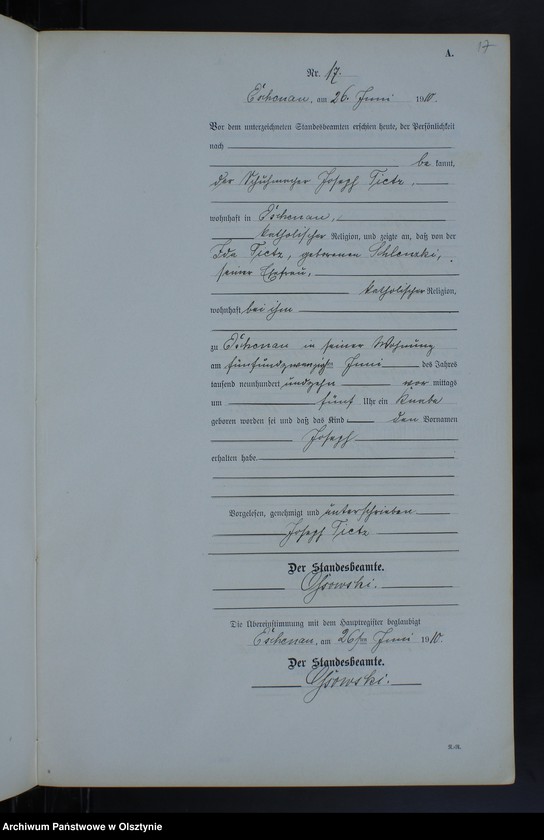 17
A.
Nr. 17.
Eschenau, am 26. Juni 1910.
Vor dem unterzeichneten Standesbeamten erschien heute, der Persönlichkeit
nach
be kannt,
der Schuhmacher Joseph Tietz,
wohnhaft in Eschenau,
katholischer Religion, und zeigte an, daß von der
Ida Tietz, geborenen
seiner Ehefrau,
katholischer Religion,
wohnhaft bei ihm
zu Eschenau in seiner Wohnung
am fünfundzwanzigsten Juni des Jahres
tausend neunhundert undzehn vor mittags
um fünf Uhr ein Knabe
geboren worden sei und daß das Kind den Vornamen
Joseph
erhalten habe.
Vorgelesen, genehmigt und unterschrieben.
Joseph Tietz
Der Standesbeamte.
Ossowski.
Die Übereinstimmung mit dem Hauptregister beglaubigt
Eschenau, am 26ten Juni 1910.
Der Standesbeamte.
Ossowski.
Archiwum Państwowe w Olsztynie